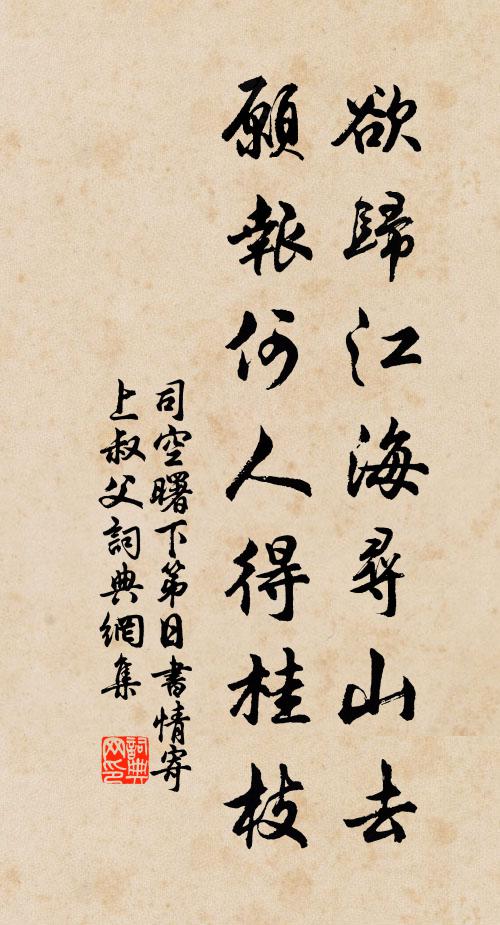 欲歸江海尋山去
願報何人得桂枝
司空曙下第日書情寄
上叔父詞典網集
詞典
网印